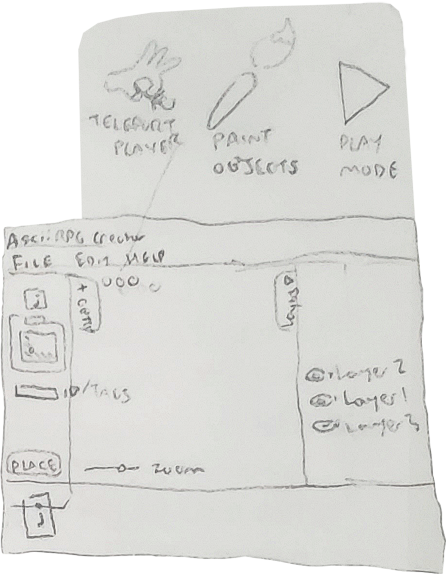 TELEPORT
PLAYER
PAINT
OBJECTS
PLAY
MODE
Ascii RPG Creator
FILE EDIT HELP
ID/TAGS
Layer 2
Layer 1
Layer 3
PLACE
Zoom